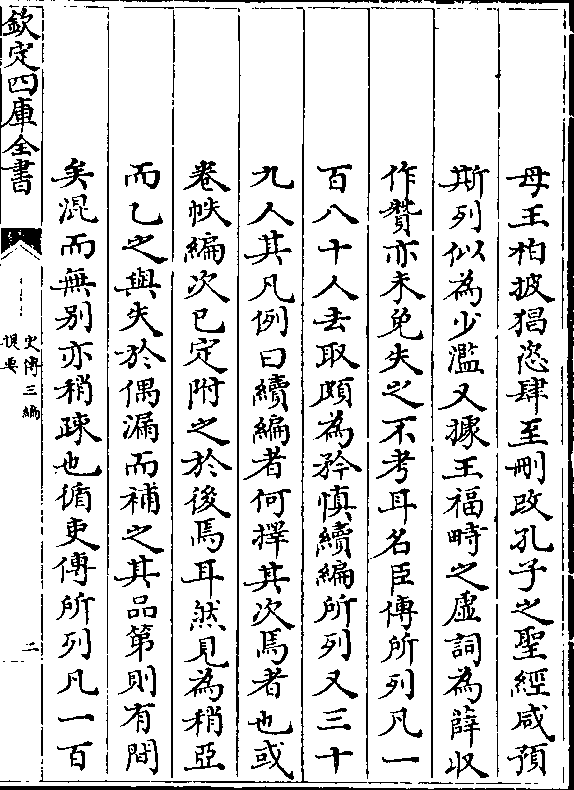 母王柏披猖恣肆至刪改孔子之聖經咸預
斯列似為少濫又據王福畤之虛詞為薛收
作贊亦未免失之不考耳名臣傳所列凡一
百八十人去取頗為矜慎續編所列又三十
九人其凡例曰續編者何擇其次焉者也或
卷帙編次已定附之於後焉耳然見為稍亞
而乙之與失於偶漏而補之其品第則有間
矣混而無別亦稍疎也循吏傳所列凡一百
欽定四庫全書
史傳三編
提要
二